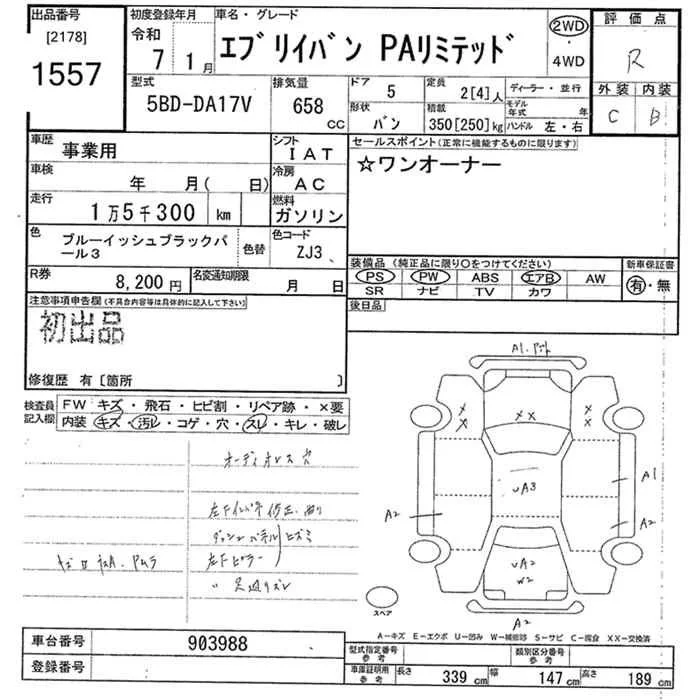 出品番号
[2178]
1557
初度登録年月
令和
7年 1月
車名・グレード
エブリイバン PAリミテッド
2WD・4WD
評価点
R
外装 内装
C B
型式
5BD-DA17V
排気量
658 CC
ドア 5
形状 バン
定員 2[4]人
積載 350[250]kg
ディーラー・並行
モデル年式 年
ハンドル 左・右
車歴 事業用
車検 年 月( 日)
走行 1万5千300 km
色 ブルーイッシュブラックパール3
色替
シフト IAT
冷房 AC
燃料 ガソリン
色コード ZJ3
R券 8,200円
名変通知期限 月 日
セールスポイント(正常に機能するものに限ります)
☆ワンオーナー
装備品(純正品に限り○をつけてください)
PS PW ABS エアB AW
SR ナビ TV カワ
新車保証書
有・無
後日品
注意事項申告欄(不具合内容等は具体的に記入して下さい)
初出品
修復歴 有〔箇所 〕
検査員記入欄
FW キズ・飛石・ヒビ割・リペア跡・×要
内装 キズ・汚レ・コゲ・穴・スレ・キレ・破レ
オーディオレス 穴
左下ピラー
A1
××
×
×
×
×
UA3
A1
A2
A2
UA2
W2
A2
スペア
A-キズ E-エクボ U-凹み W-補修跡 S-サビ C-腐食 XX-交換済
車台番号 903988
登録番号
型式指定番号 参考
類別区分番号 参考
車庫証明用 参考
長さ 339cm 幅 147cm 高さ 189cm